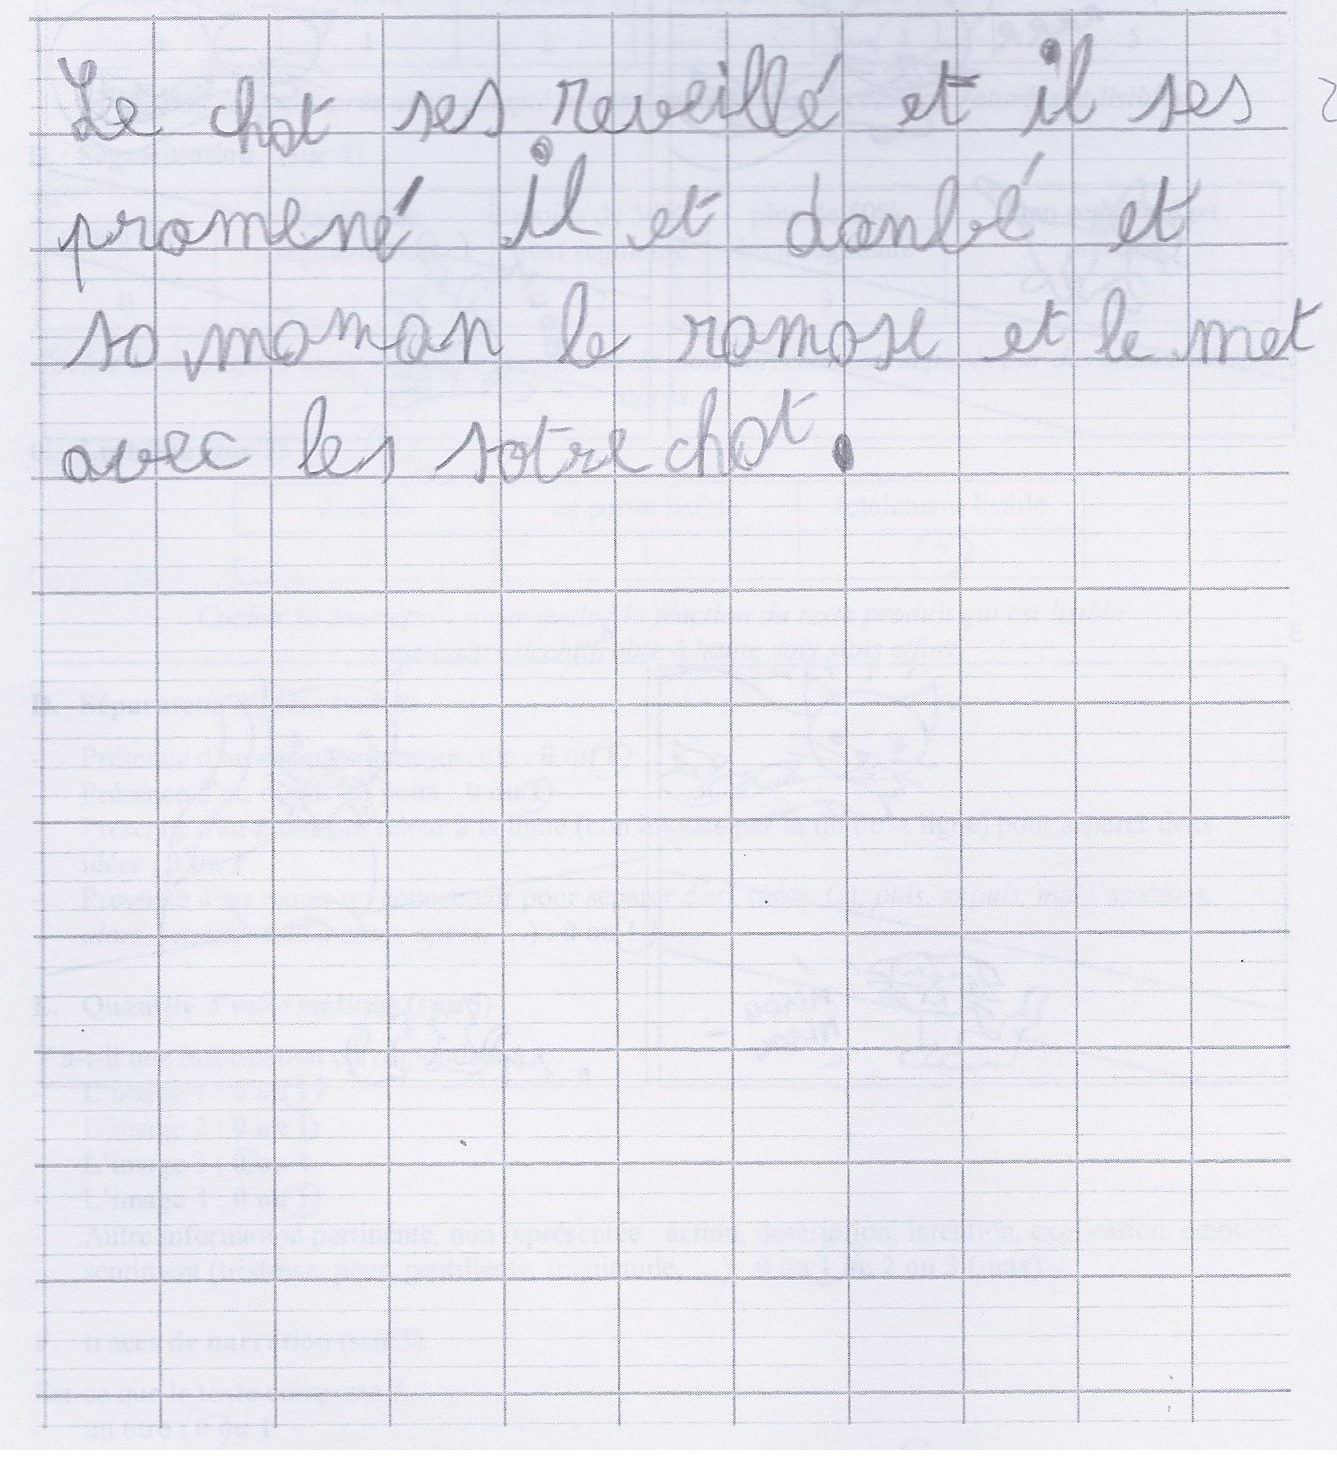 Le chat ses reveillé et il ses
promené il et donbé et
sa maman le ramase et le met
avec les sotre chat.